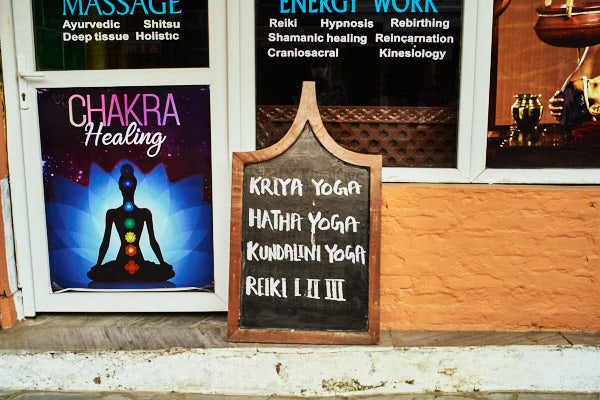 MASSAGE
Ayurvedic Shitsu
Deep tissue Holistic
ENERGY WORK
Reiki Hypnosis Rebirthing
Shamanic healing Reincarnation
Craniosacral Kinesiology
CHAKRA
Healing
KRIYA YOGA
HATHA YOGA
KUNDALINI YOGA
REIKI I II III